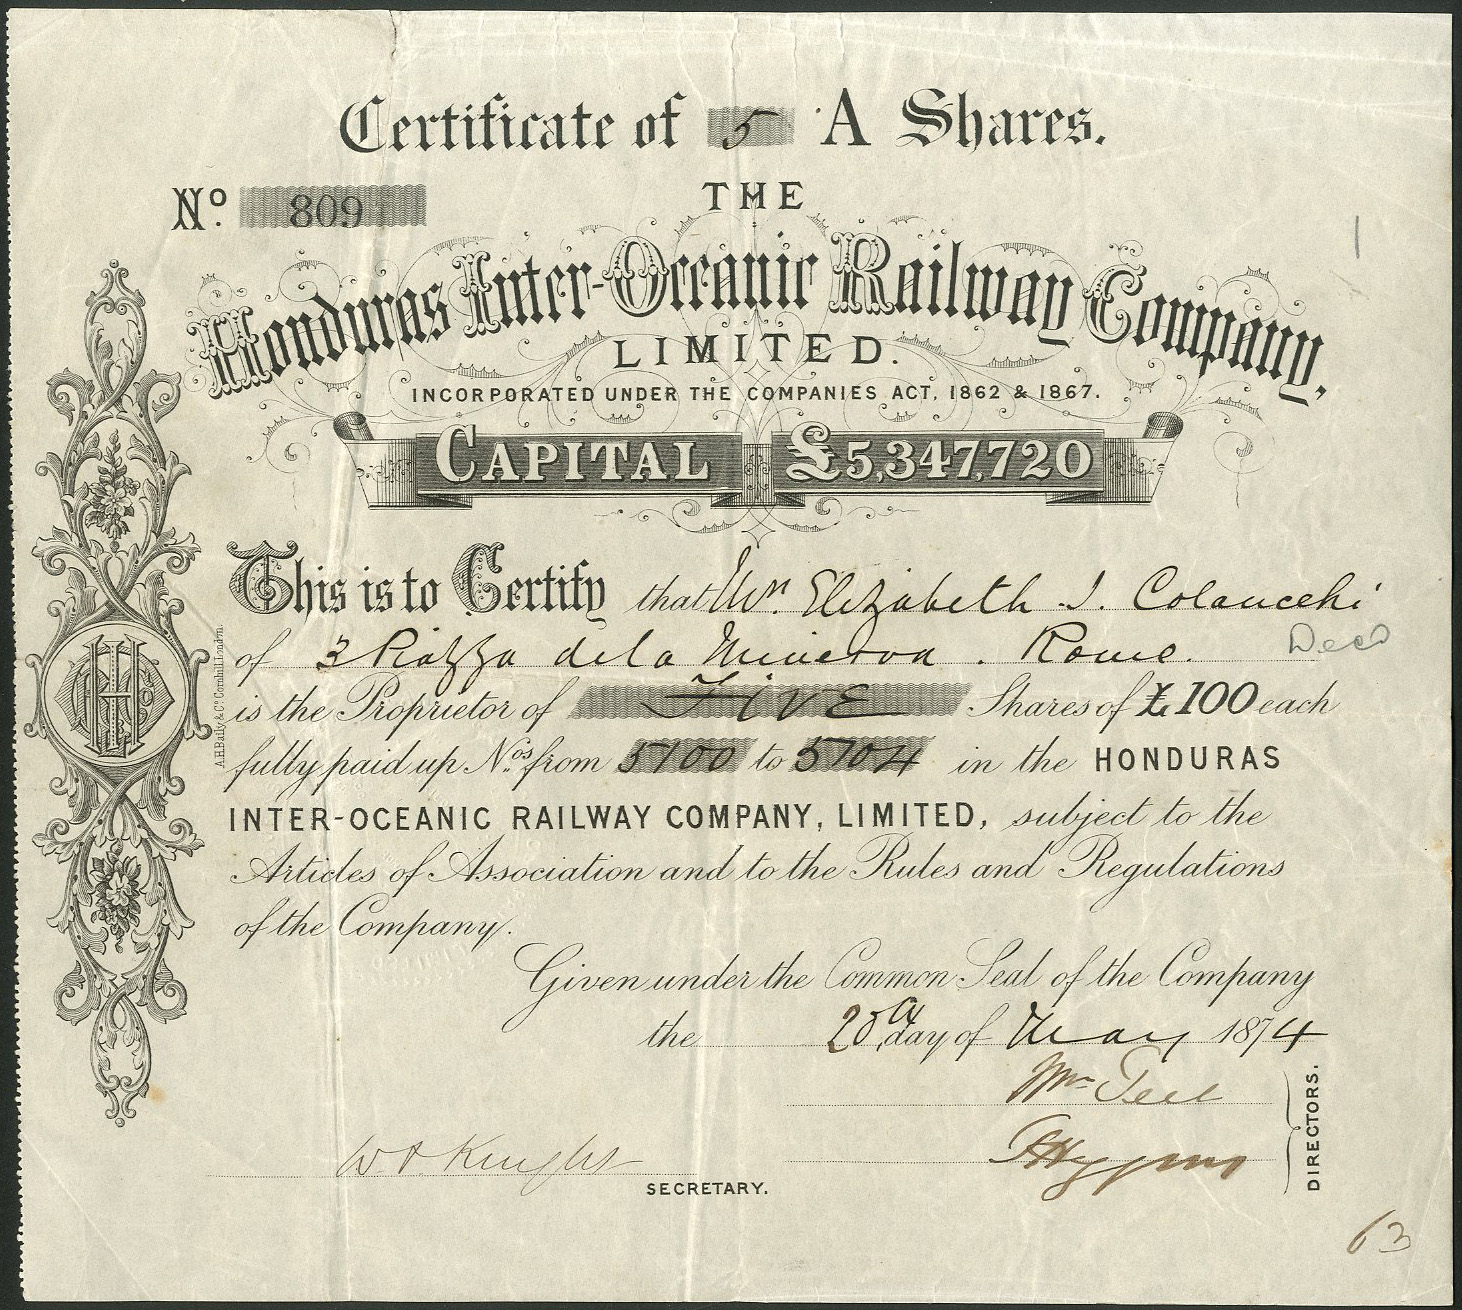 Certificate of 5 A Shares.
No. 809
THE
Honduras Inter-Oceanic Railway Company,
LIMITED.
INCORPORATED UNDER THE COMPANIES ACT, 1862 & 1867.
CAPITAL £5,347,720
This is to Certify that Mrs. Elizabeth J. Colaucchi
of 3 Piazza dela Minerva. Rome. Decd
is the Proprietor of FIVE Shares of £100 each
fully paid up Nos. from 5700 to 5704 in the HONDURAS
INTER-OCEANIC RAILWAY COMPANY, LIMITED, subject to the
Articles of Association and to the Rules and Regulations
of the Company.
Given under the Common Seal of the Company
the 20th day of May 1874
Wm Teet
W. P. Knight
SECRETARY.
DIRECTORS.
A.H. Baily & Co. Cornhill London.
63